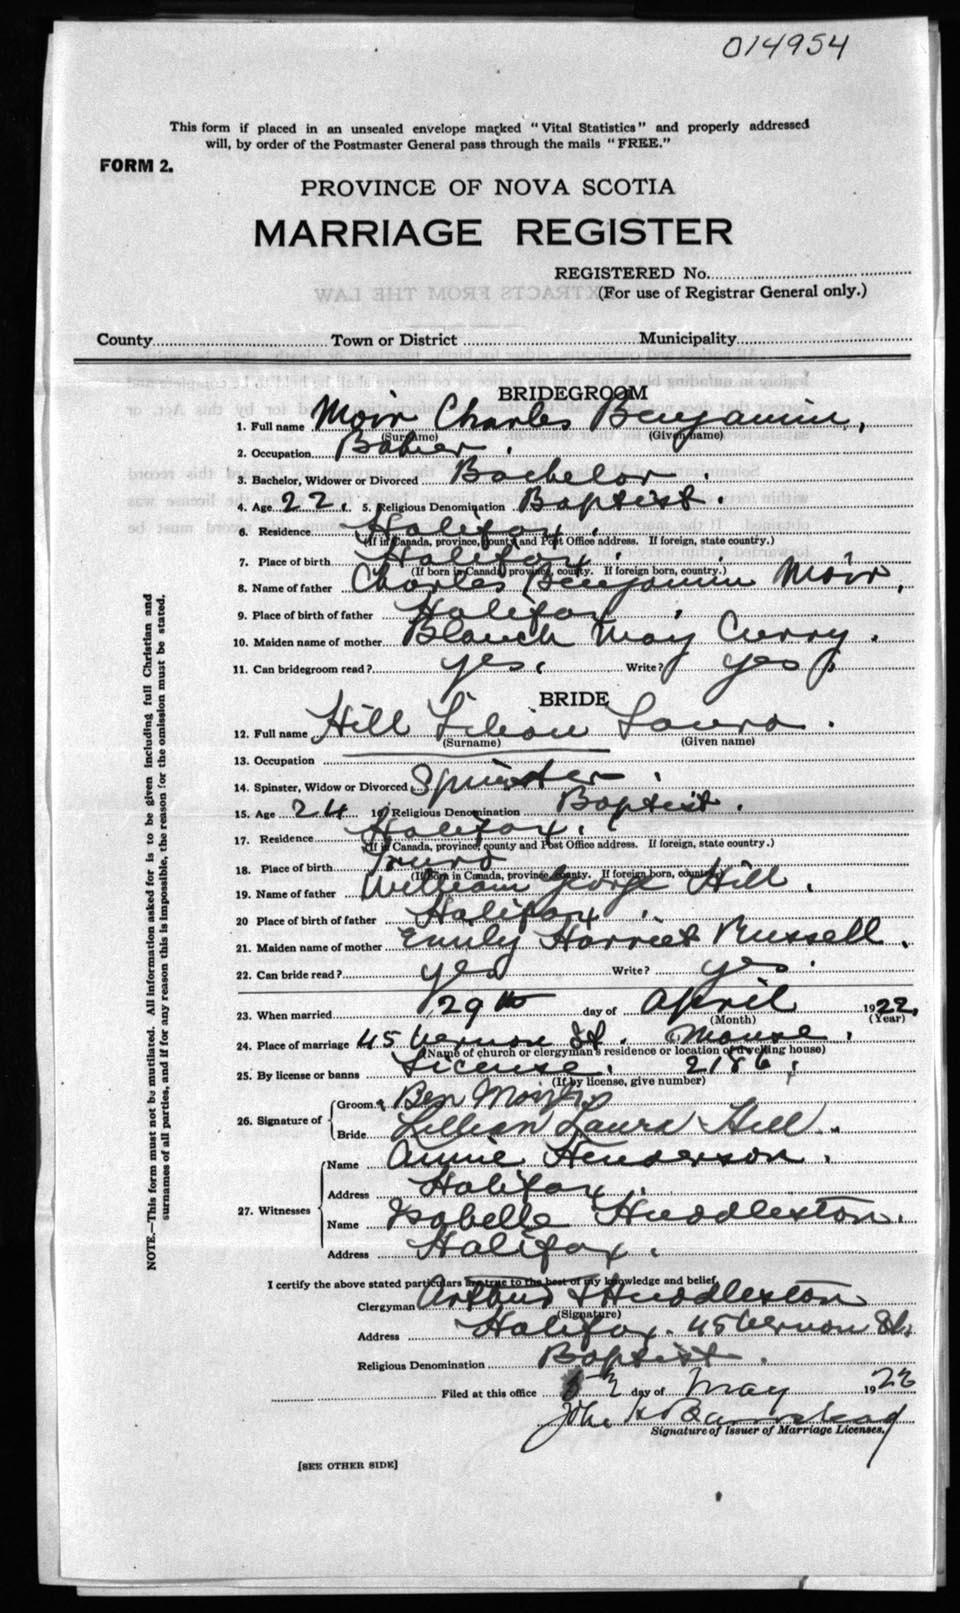 014954
This form if placed in an unsealed envelope marked "Vital Statistics" and properly addressed
will, by order of the Postmaster General pass through the mails "FREE."
FORM 2.
PROVINCE OF NOVA SCOTIA
MARRIAGE REGISTER
REGISTERED No.
(For use of Registrar General only.)
County Town or District Municipality
BRIDEGROOM
1. Full name Moir Charles Benjamin,
(Surname) (Given name)
2. Occupation Baker.
3. Bachelor, Widower or Divorced Bachelor.
4. Age 22. 5. Religious Denomination Baptist.
6. Residence Halifax.
(If in Canada, province, county and Post Office address. If foreign, state country.)
7. Place of birth Halifax.
(If born in Canada, province, county. If foreign born, country.)
8. Name of father Charles Benjamin Moir,
9. Place of birth of father Halifax.
10. Maiden name of mother Blanch May Curry.
11. Can bridegroom read? yes. Write? yes
BRIDE
12. Full name Hill Lilian Laura.
(Surname) (Given name)
13. Occupation
14. Spinster, Widow or Divorced Spinster.
15. Age 24 16. Religious Denomination Baptist.
17. Residence Halifax.
(If in Canada, province, county and Post Office address. If foreign, state country.)
18. Place of birth Truro
(If Born in Canada, province, county. If foreign born, country.)
19. Name of father William George Hill.
20 Place of birth of father Halifax.
21. Maiden name of mother Emily Harriet Russell.
22. Can bride read? yes Write? yes.
23. When married 29th day of April 1922.
(Month) (Year)
24. Place of marriage 45 Vernon St. Manse.
(Name of church or clergyman's residence or location of dwelling house)
25. By license or banns License. 2186.
(If by license, give number)
26. Signature of Groom Ben Moir
Bride Lillian Laura Hill
27. Witnesses Name Annie Henderson.
Address Halifax.
Name Isabelle Huddleston.
Address Halifax.
I certify the above stated particulars are true to the best of my knowledge and belief,
Clergyman Arthur Huddleston
(Signature)
Address Halifax. 45 Vernon St.
Religious Denomination Baptist.
Filed at this office day of May 1922
John
Signature of Issuer of Marriage Licenses.
[SEE OTHER SIDE]
NOTE.—This form must not be mutilated. All information asked for is to be given including full Christian and
surnames of all parties, and if for any reason this is impossible, the reason for the omission must be stated.